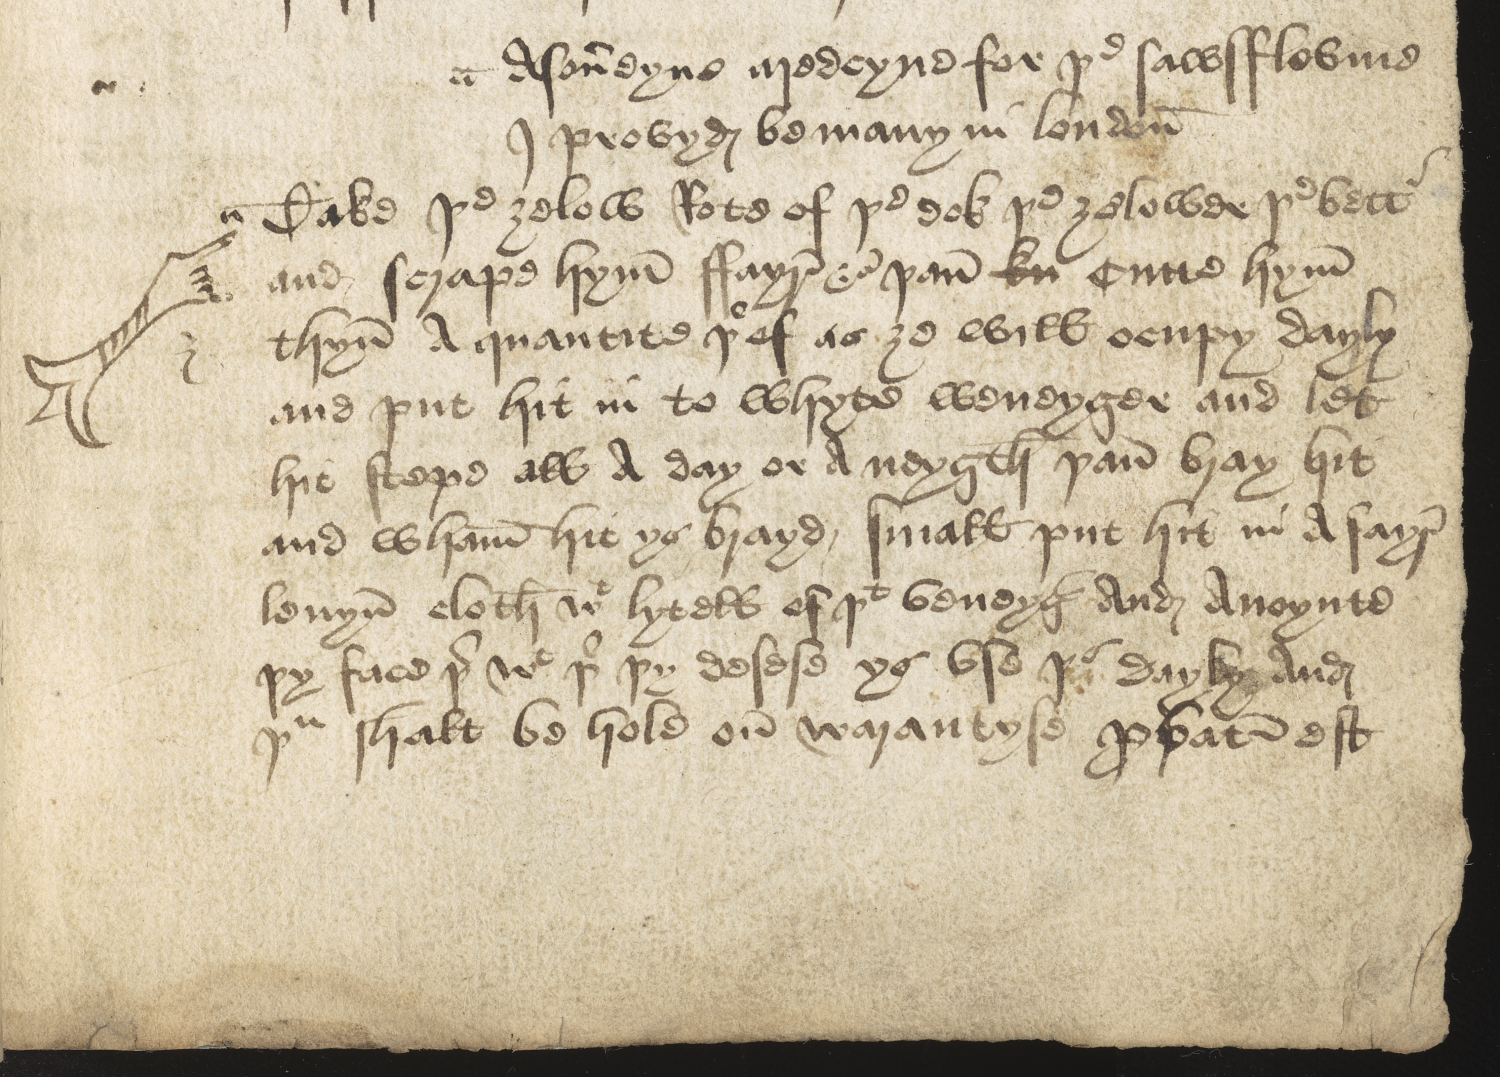 A son͞dyne medcyne for þe sawsfflovme
I provyd be many in london͞
Take þe ȝelow Rote of þe dok þe ȝelower þe bett'
and scrape hym͞ ffayr͞ & þan͞ kn Cutte hym͞
thyn͞ A quantite þ'of as ȝe will ocupy dayly
and put hit in to whyte weneyger and let
hit stepe all A day or A neygth͞ þan͞ bray hit
and wham͞ hit ys brayd small put hit in A fayr͞
lenyn͞ cloth͞ wt lytell of þt veneyg͞ And Anoynte
þy face þ' wt þ' þy desese ys vse þs dayly And
þu shalt be hole on͞ warantyse ꝓbatu͞ est